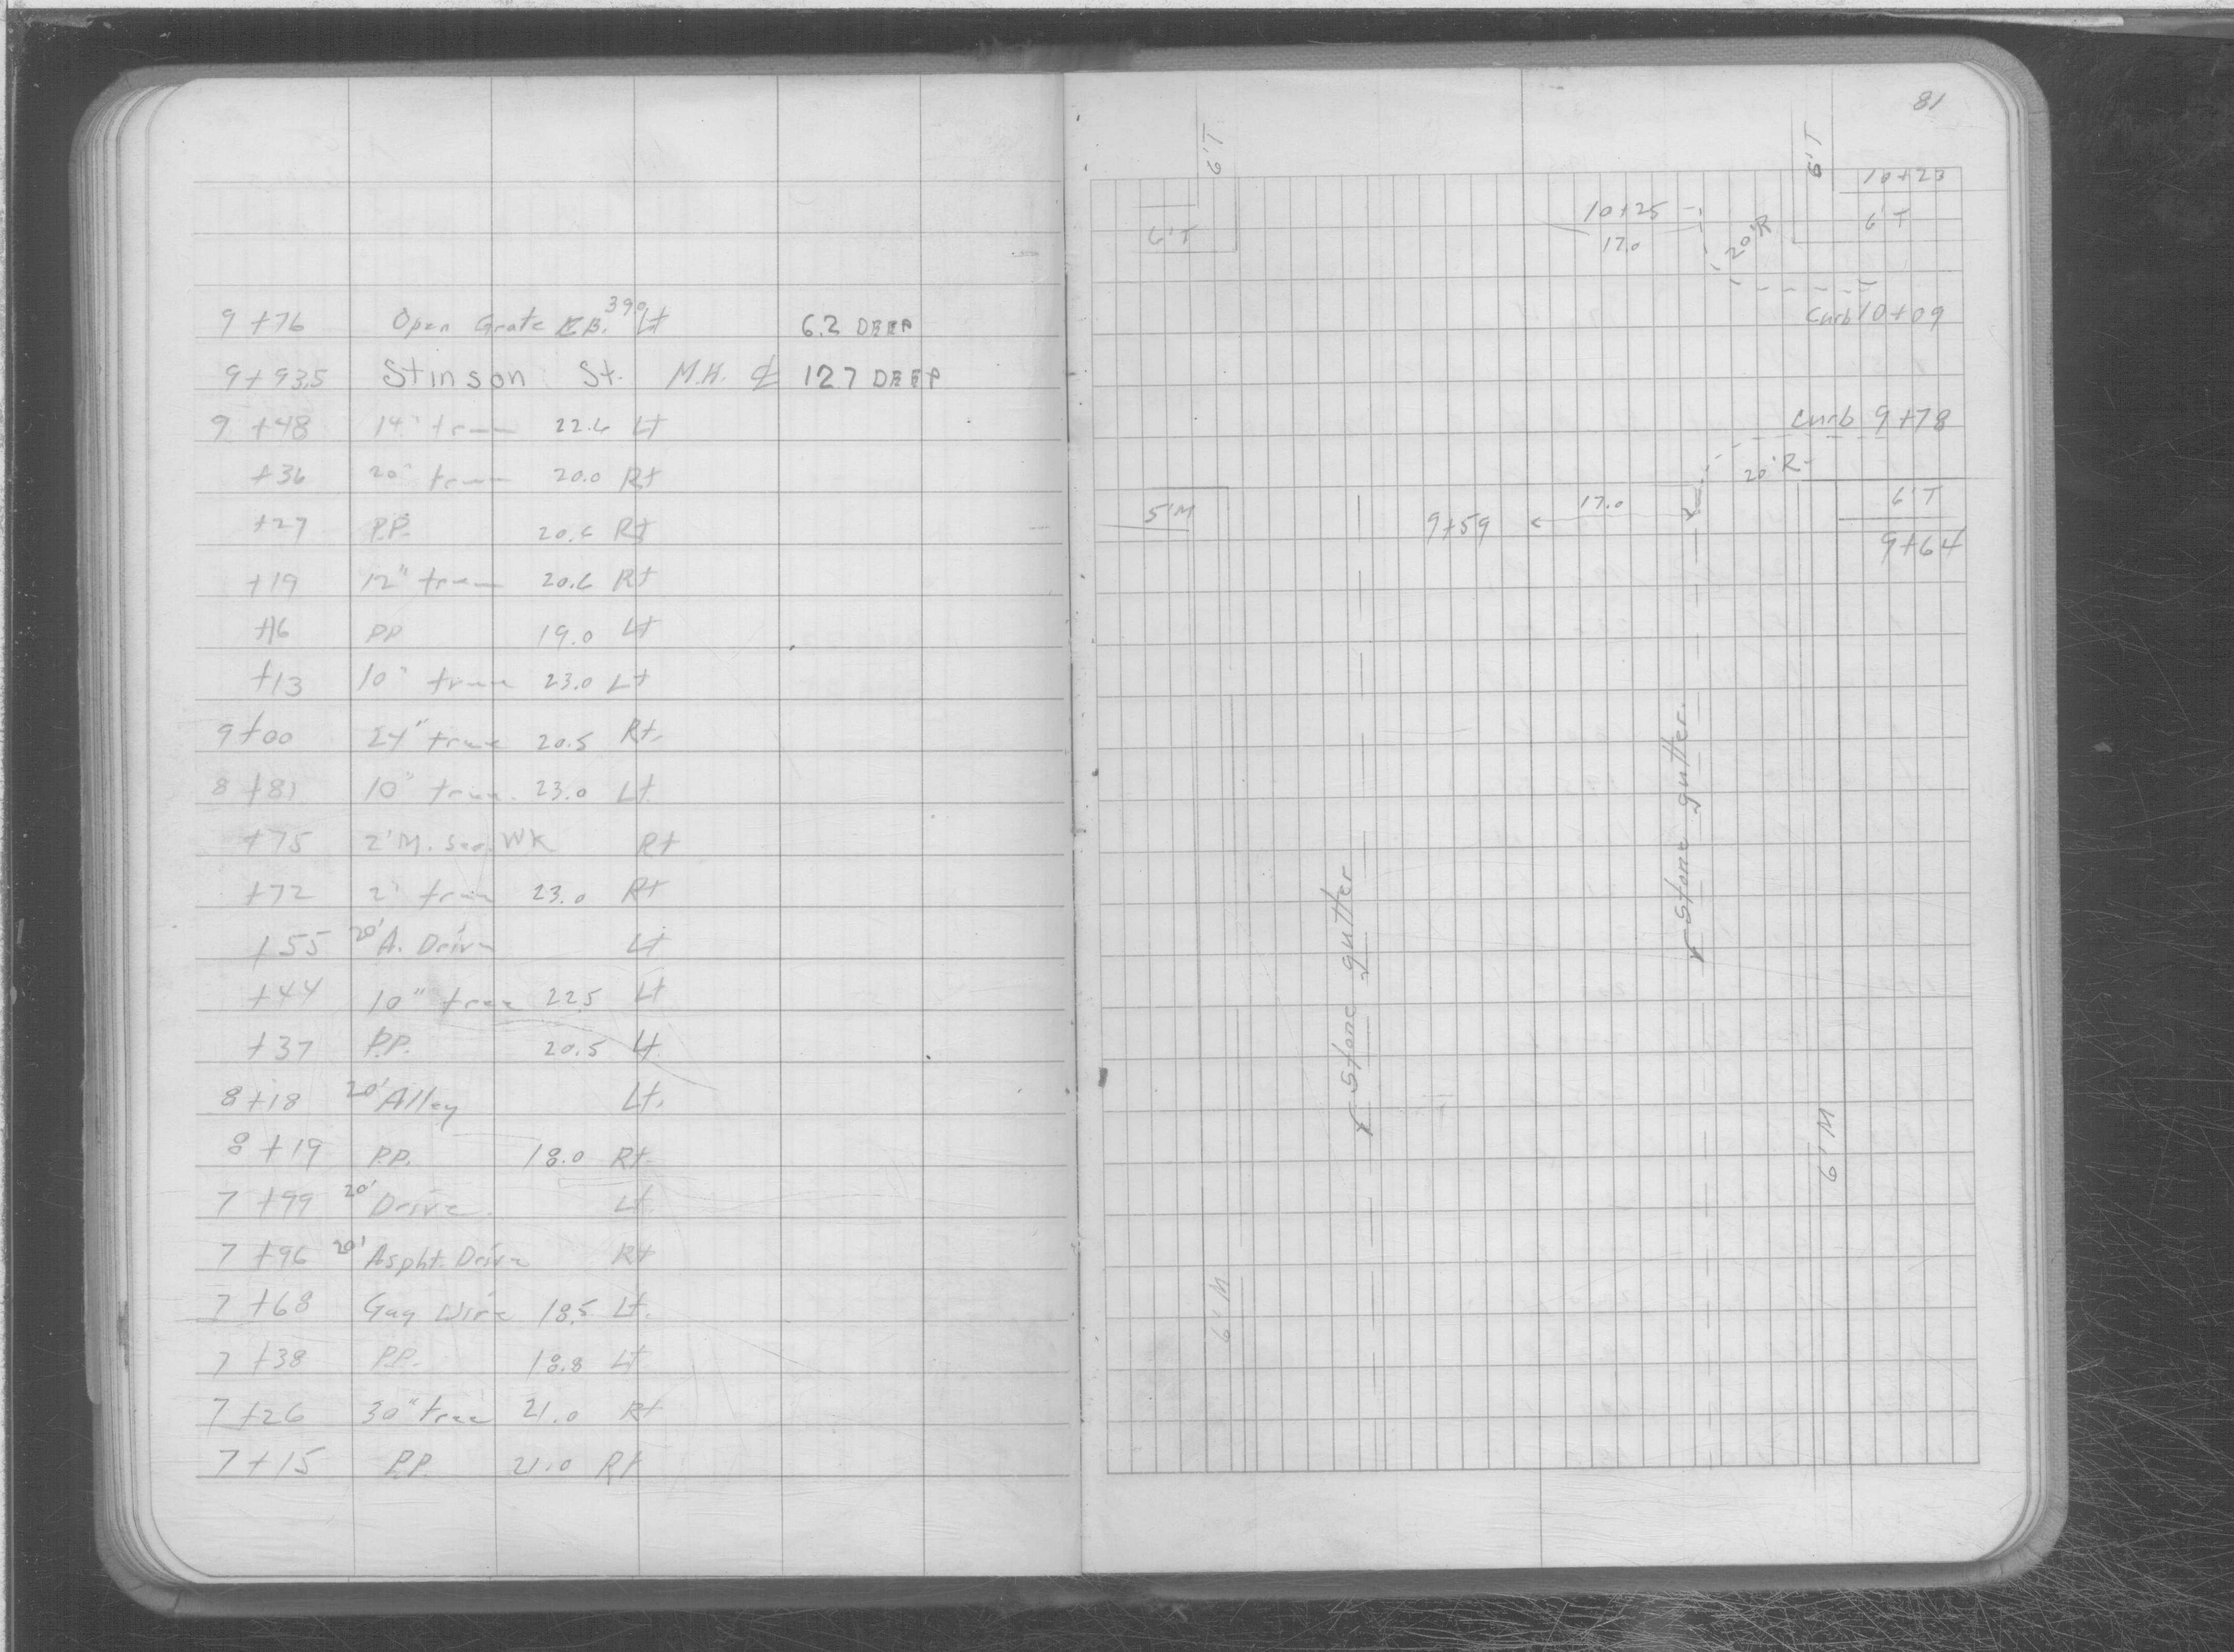 9+76 Open Grate C.B. 39.0 Lt 6.2 DEEP
9+93.5 Stinson St. M.H. ℄ 12.7 DEEP
9+48 14" tree 22.6 Lt
+36 20" tree 20.0 Rt
+27 P.P. 20.6 Rt
+19 12" tree 20.6 Rt
+16 PP 19.0 Lt
+13 10" tree 23.0 Lt
9+00 24" tree 20.5 Rt.
8+81 10" tree. 23.0 Lt
+75 2'M. Ser. WK Rt
+72 2' tree 23.0 Rt
+55 20' A. Drive Lt
+44 10" tree 22.5 Lt
+37 P.P. 20.5 Lt
8+18 20' Alley Lt.
8+19 P.P. 18.0 Rt.
7+99 20' Drive. Lt.
7+96 20' Aspht. Drive Rt
7+68 Guy Wire 18.5 Lt.
7+38 P.P. 18.8 Lt
7+26 30" tree 21.0 Rt
7+15 P.P. 21.0 Rt
81
6'T
6'T
10+23
6'T
10+25
17.0
20'R
6'T
Curb 10+09
Curb 9+78
20'R
5'M
9+59
17.0
6'T
9+64
Stone gutter.
Stone gutter
6'M
6'M